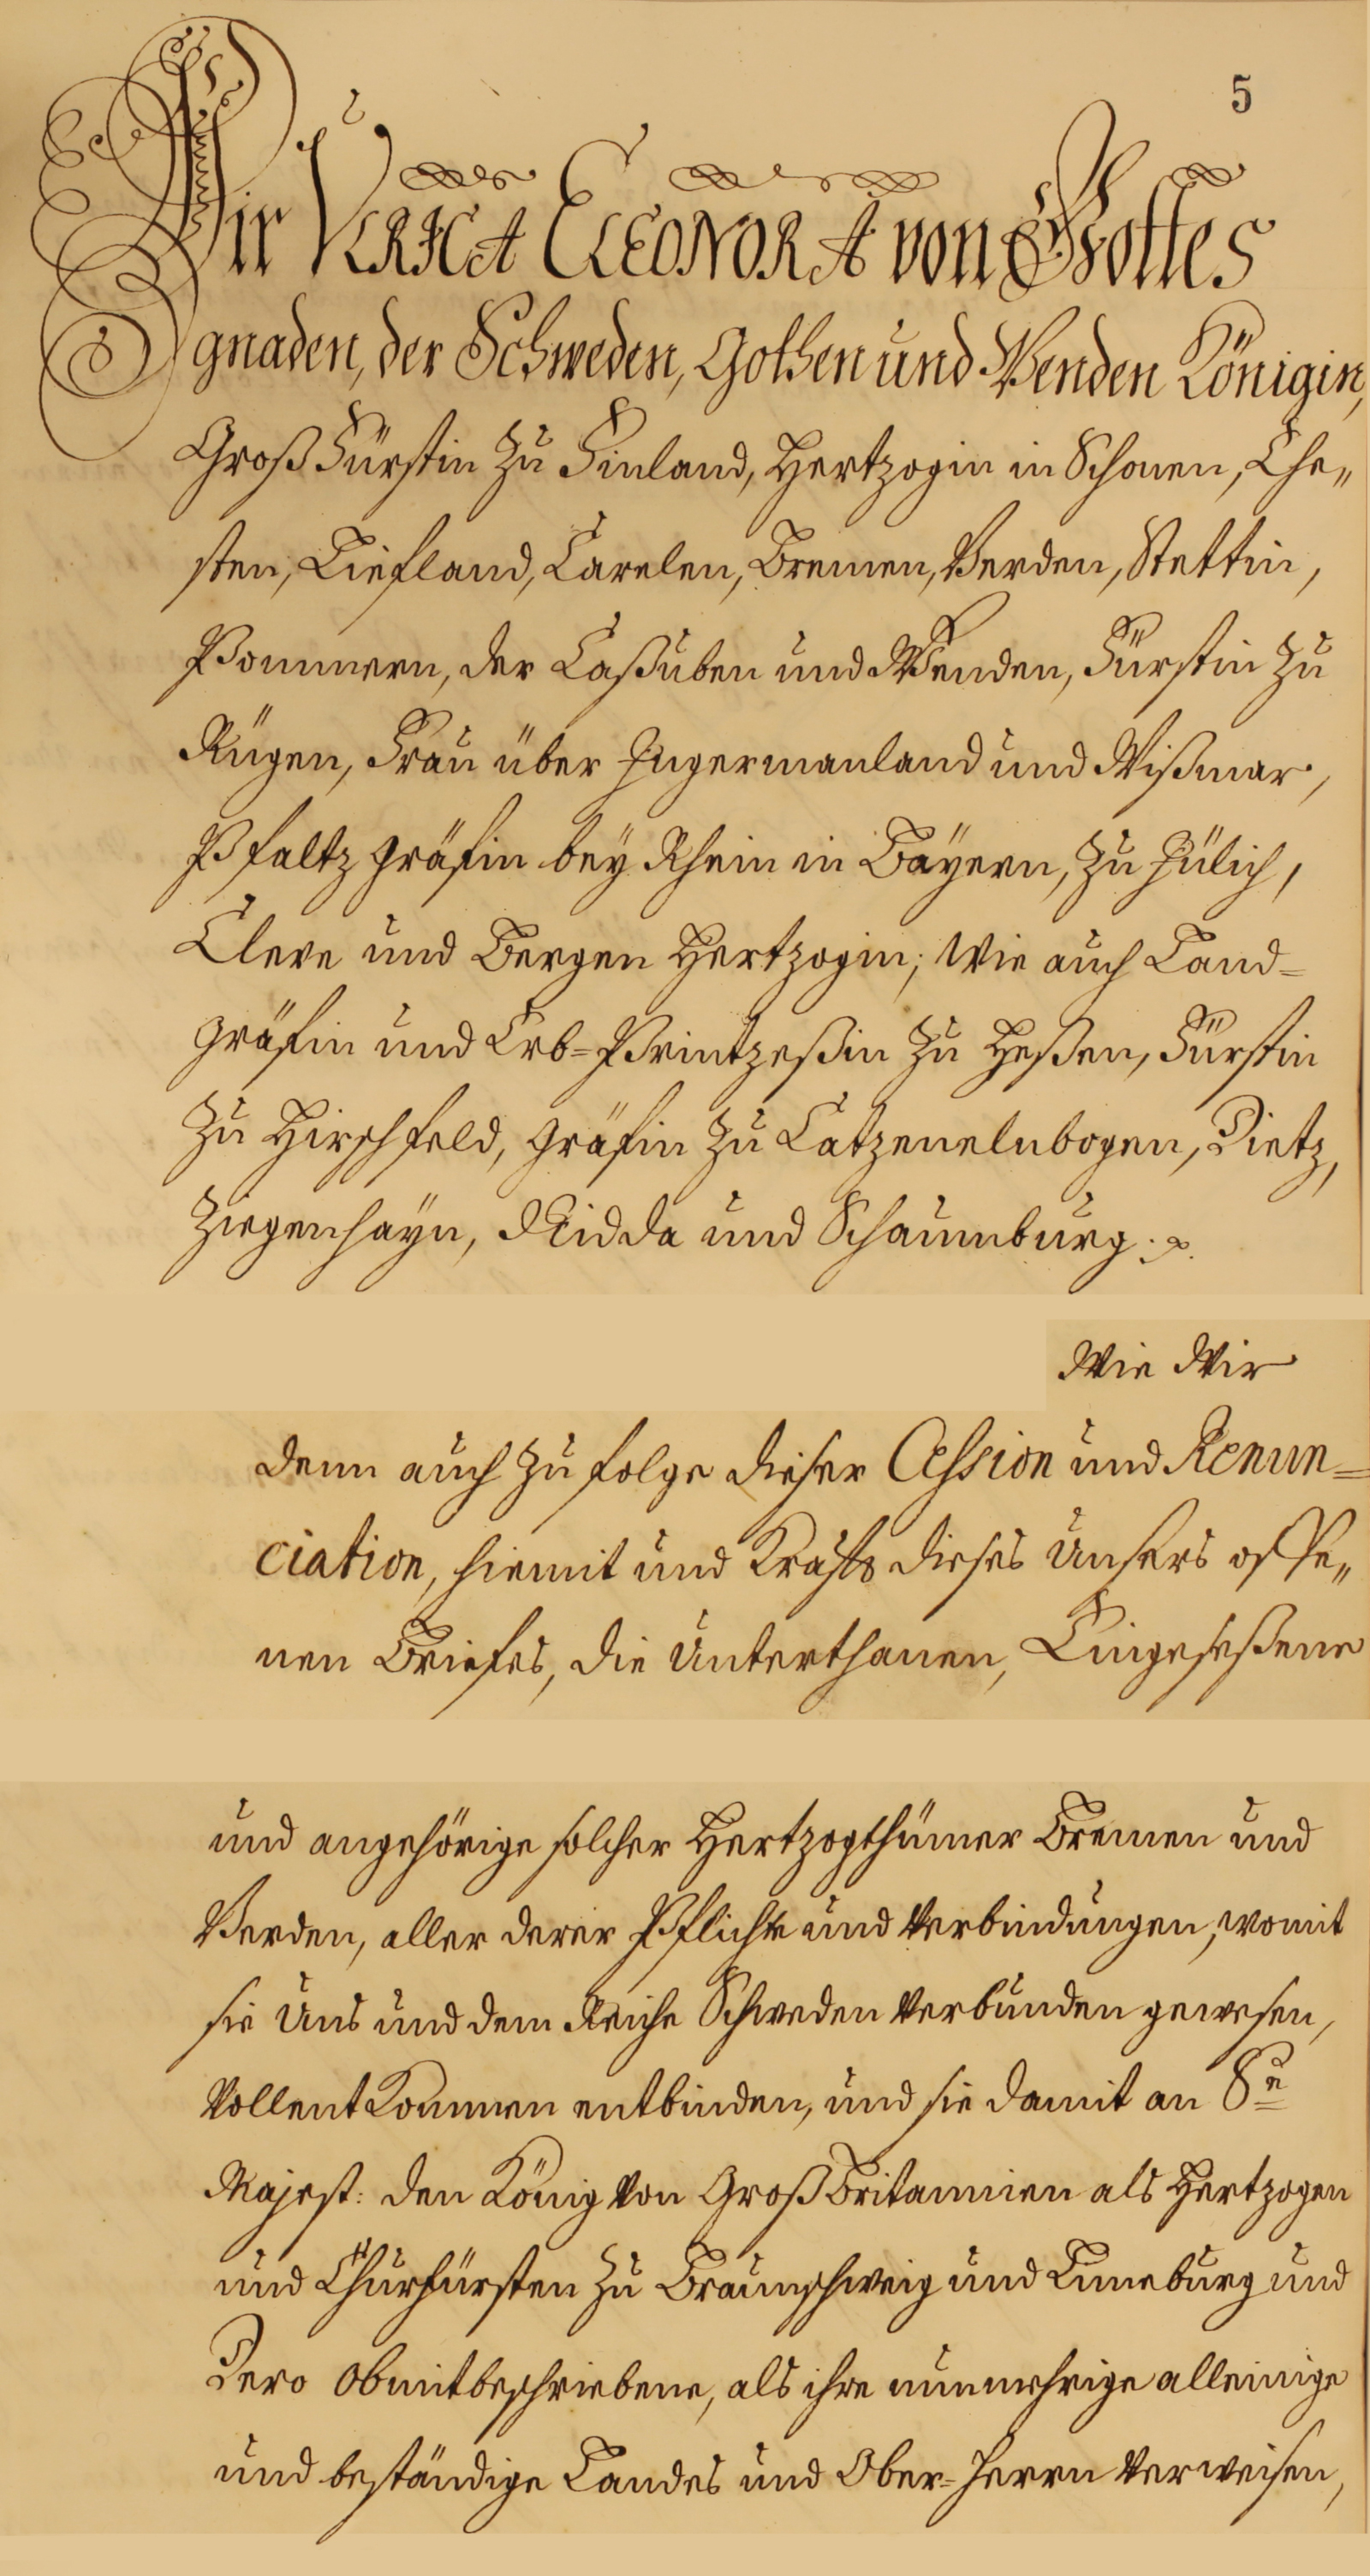 5
Wir VLRICA ELEONORA von Gottes
gnaden, der Schweden, Gothen und Wenden Königin,
Groß Fürstin zu Finland, Hertzogin in Schonen, Ehe„
sten, Liefland, Carelen, Bremen, Verden, Stettin,
Pommern, der Caßuben und Wenden, Fürstin zu
Rügen, Frau über Ingermanland und Wißmar,
Pfaltzgräfin bey Rhein in Bäyern, zu Jülich,
Cleve und Bergen Hertzogin; Wie auch Land=
gräfin und Erb=Printzeßin zu Heßen, Fürstin
zu Hirschfeld, gräfin zu Catzenelnbogen, Dietz,
Ziegenhayn, Nidda und Schaumburg.
Wie Wir
denn auch zu folge dieser Cession und Renun=
ciation, hiemit und Krafft dieses Unsers offe„
nen Briefes, die Unterthanen, Eingeseßene
und angehörige solcher Hertzogthümer Bremen und
Verden, aller derer Pflicht und Verbindungen, womit
sie Uns und dem Reiche Schweden verbunden gewesen,
Vollentkommen entbinden, und sie damit an Se
Majest: den König von Großbritannien als Hertzogen
und Churfürsten zu Braunschweig und Luneburg und
Dero Obmitbeschriebene, als ihre nunmehrige alleinige
und beständige Landes und Ober=Herrn verweisen,